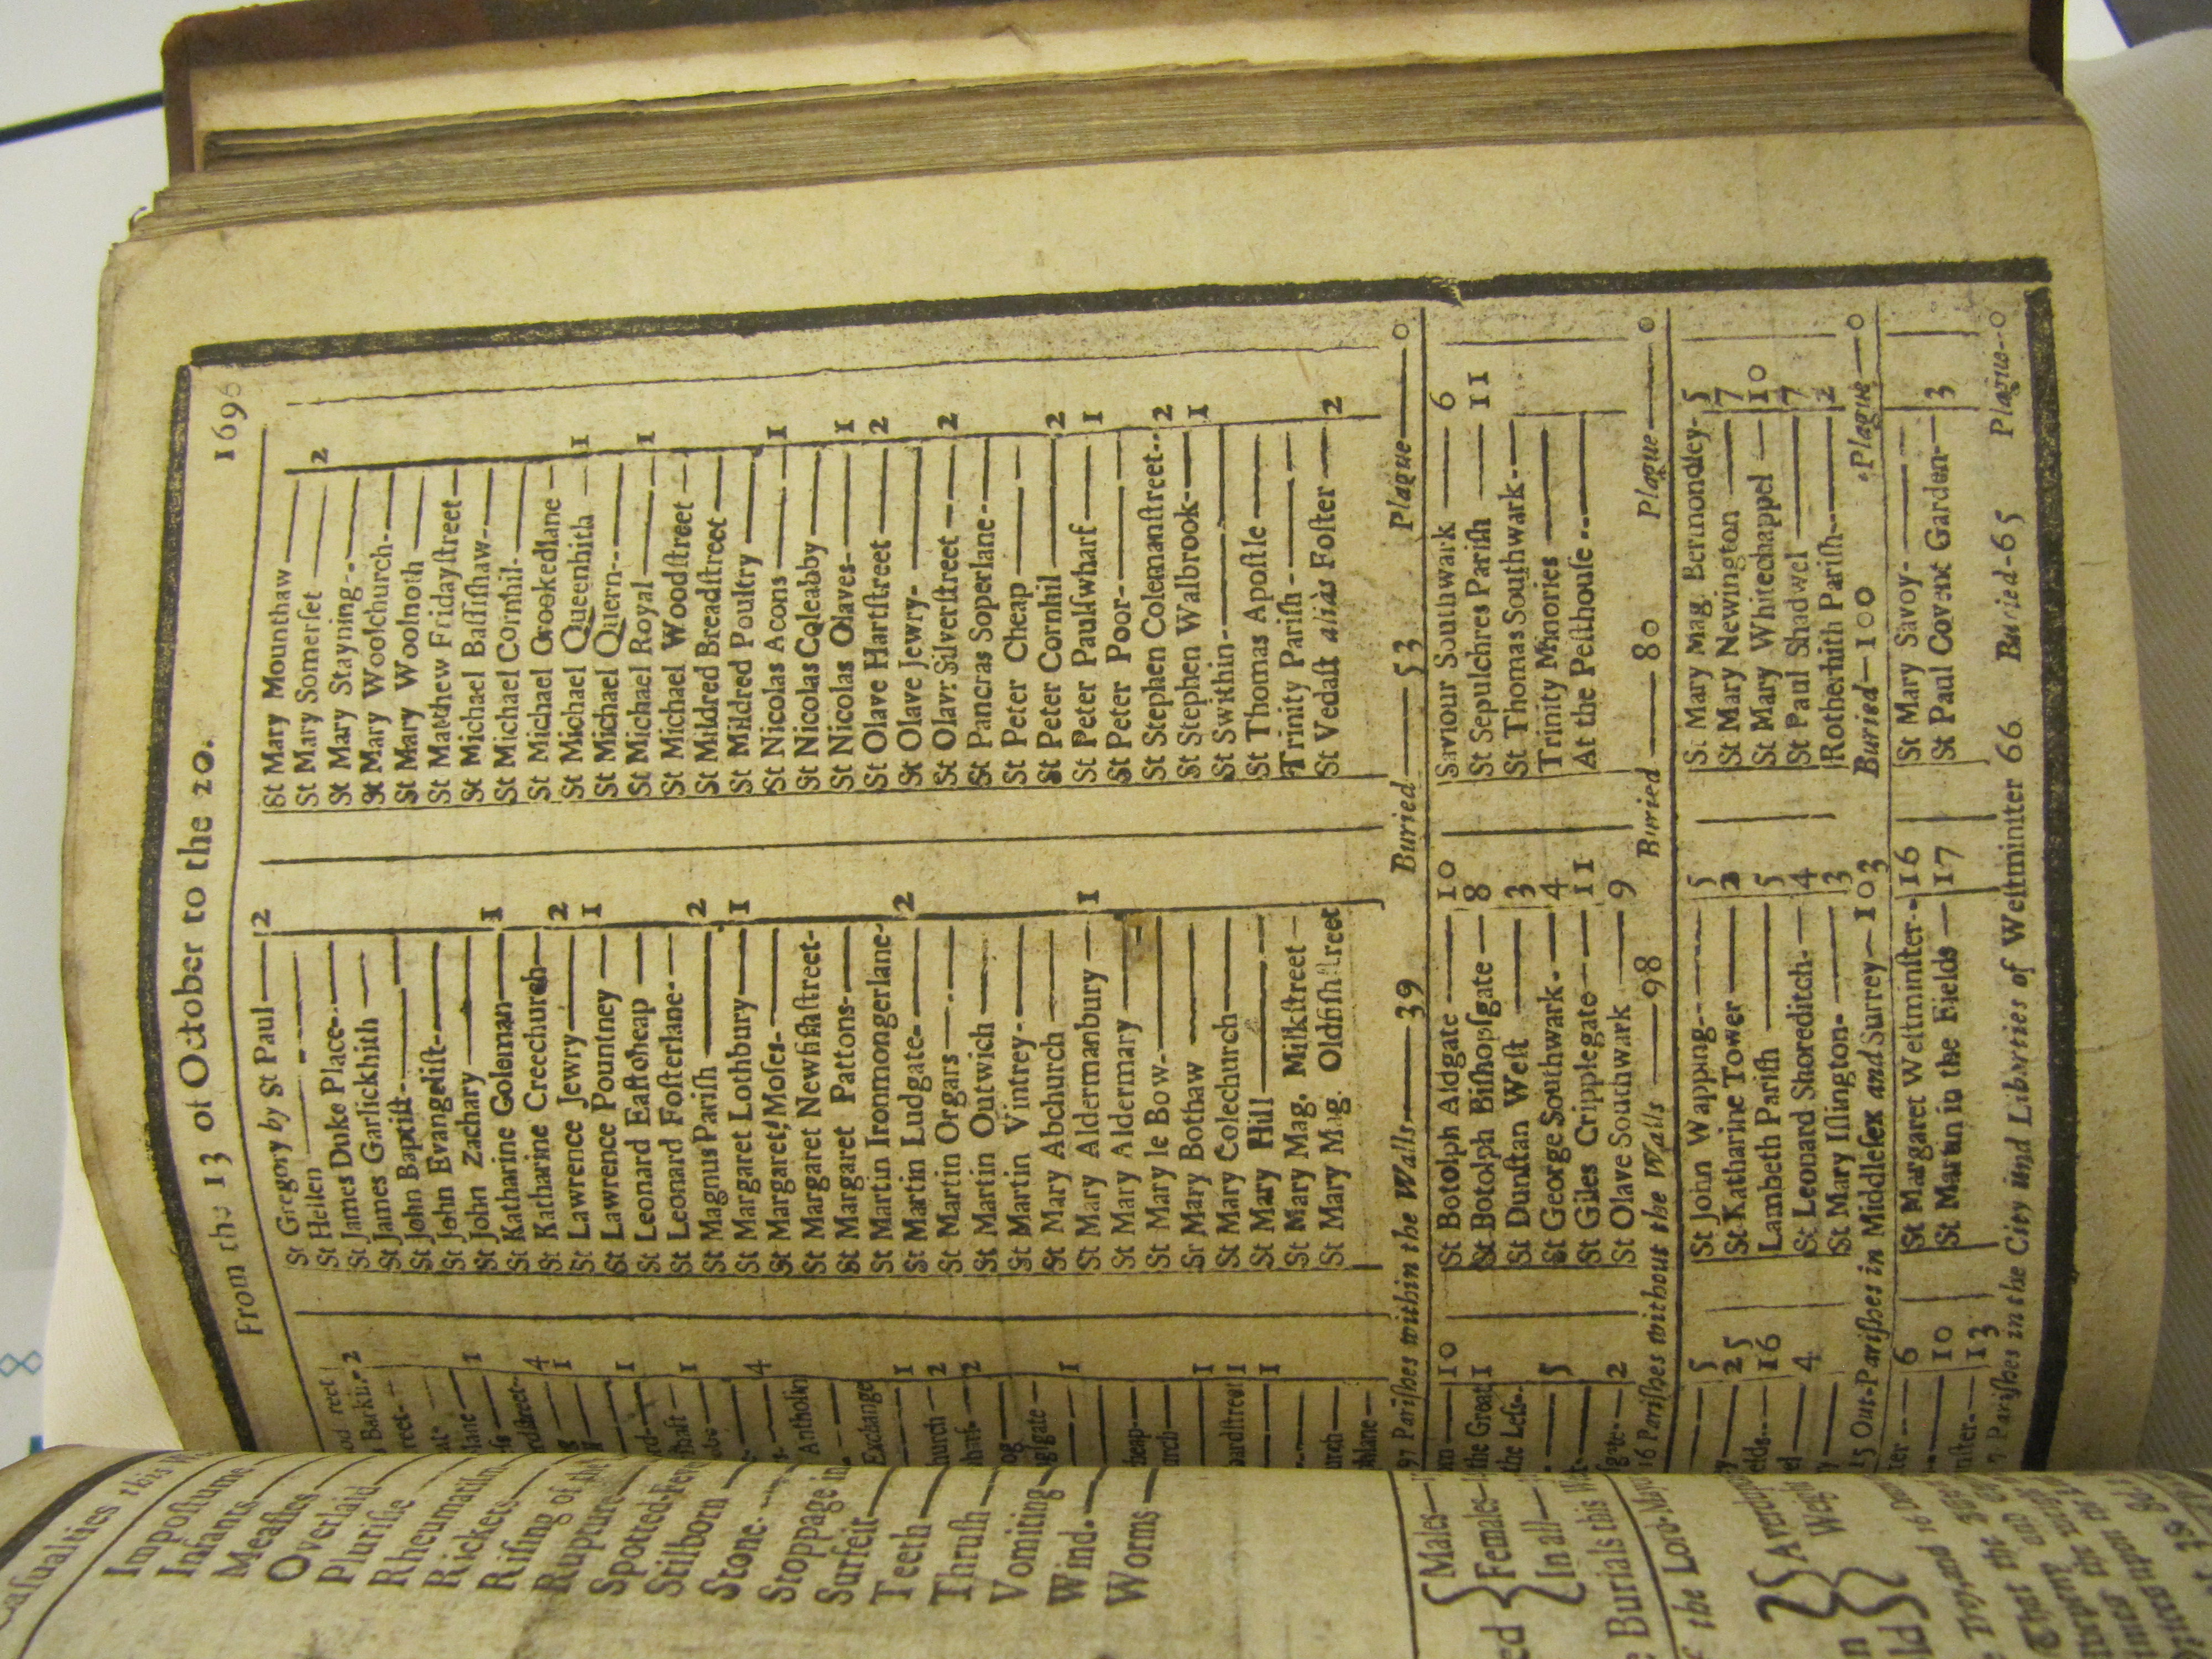 From the 13 of October to the 20. 1696
St Gregory by St Paul—2
St Hellen
St James Duke Place
St James Garlickhith
St John Baptist
St John Evangelist
St John Zachary
St Katharine Coleman—1
St Katharine Creechurch
St Lawrence Jewry—2
St Lawrence Pountney—1
St Leonard Eastcheap
St Leonard Fosterlane
St Magnus Parish—2
St Margaret Lothbury—1
St Margaret Moses
St Margaret Newfishstreet
St Margaret Pattons
St Martin Ironmongerlane
St Martin Ludgate—2
St Martin Orgars
St Martin Outwich
St Martin Vintrey
St Mary Abchurch
St Mary Aldermanbury—1
St Mary Aldermary
St Mary le Bow
St Mary Bothaw
St Mary Colechurch
St Mary Hill
St Mary Mag. Milkstreet
St Mary Mag. Oldfishstreet
St Mary Mounthaw
St Mary Somerset—2
St Mary Stayning
St Mary Woolchurch
St Mary Woolnoth
St Matthew Fridaystreet
St Michael Bassishaw
St Michael Cornhil
St Michael Crookedlane
St Michael Queenhith—1
St Michael Quern
St Michael Royal—1
St Michael Woodstreet
St Mildred Breadstreet
St Mildred Poultry
St Nicolas Acons—1
St Nicolas Coleabby
St Nicolas Olaves—1
St Olave Hartstreet—2
St Olave Jewry
St Olave Silverstreet—2
St Pancras Soperlane
St Peter Cheap
St Peter Cornhil—2
St Peter Paulswharf—1
St Peter Poor
St Stephen Colemanstreet—2
St Stephen Walbrook—1
St Swithin
St Thomas Apostle
Trinity Parish
St Vedast aliàs Foster—2
97 Parishes within the Walls—39 Buried—53 Plague—0
10
the Great 1
the Less
5
2
St Botolph Aldgate—10
St Botolph Bishopsgate—8
St Dunstan West—3
St George Southwark—4
St Giles Cripplegate—11
St Olave Southwark—9
Saviour Southwark—6
St Sepulchres Parish—11
St Thomas Southwark
Trinity Minories
At the Pesthouse
16 Parishes without the Walls—98 Buried—80 Plague—0
5
25
16
4
St John Wapping—5
St Katharine Tower—2
Lambeth Parish—5
St Leonard Shoreditch—4
St Mary Islington—3
St Mary Mag. Bermondsey—5
St Mary Newington—7
St Mary Whitechappel—10
St Paul Shadwel—7
Rotherhith Parish—2
15 Out-Parishes in Middlesex and Surrey—103 Buried—100 Plague—0
6
10
13
St Margaret Westminster—16
St Martin in the Fields—17
St Mary Savoy
St Paul Covent Garden—3
7 Parishes in the City and Liberties of Westminster 66 Buried-65 Plague-0
Casualties this
Impostume
Infants
Measles
Overlaid
Plurisie
Rheumatism
Rickets
Rising of the
Rupture
Spotted-Fever
Stilborn
Stone
Stoppage in
Surfeit
Teeth
Thrush
Vomiting
Wind
Worms
Males
Females
In all
Burials this
the Lord